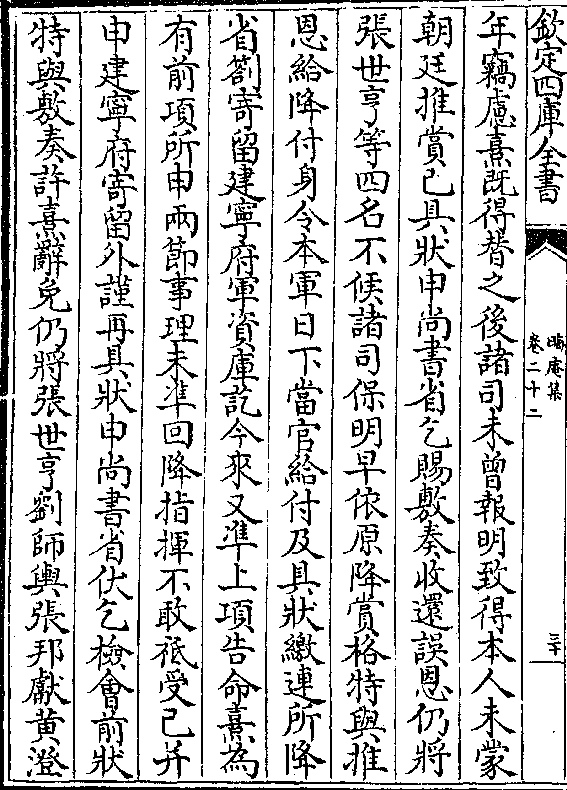 欽定四庫全書
晦庵集
卷二十二
三十
年竊慮熹既得替之後諸司未曾報明致得本人未蒙
朝廷推賞已具狀申尚書省乞賜敷奏收還誤恩仍將
張世亨等四名不候諸司保明早依原降賞格特與推
恩給降付身令本軍日下當官給付及具狀繳連所降
省劄寄留建寧府軍資庫訖今來又準上項告命熹為
有前項所申兩節事理未準回降指揮不敢祗受已并
申建寧府寄留外謹再具狀申尚書省伏乞檢會前狀
特與敷奏許熹辭免仍將張世亨劉師輿張邦獻黄澄